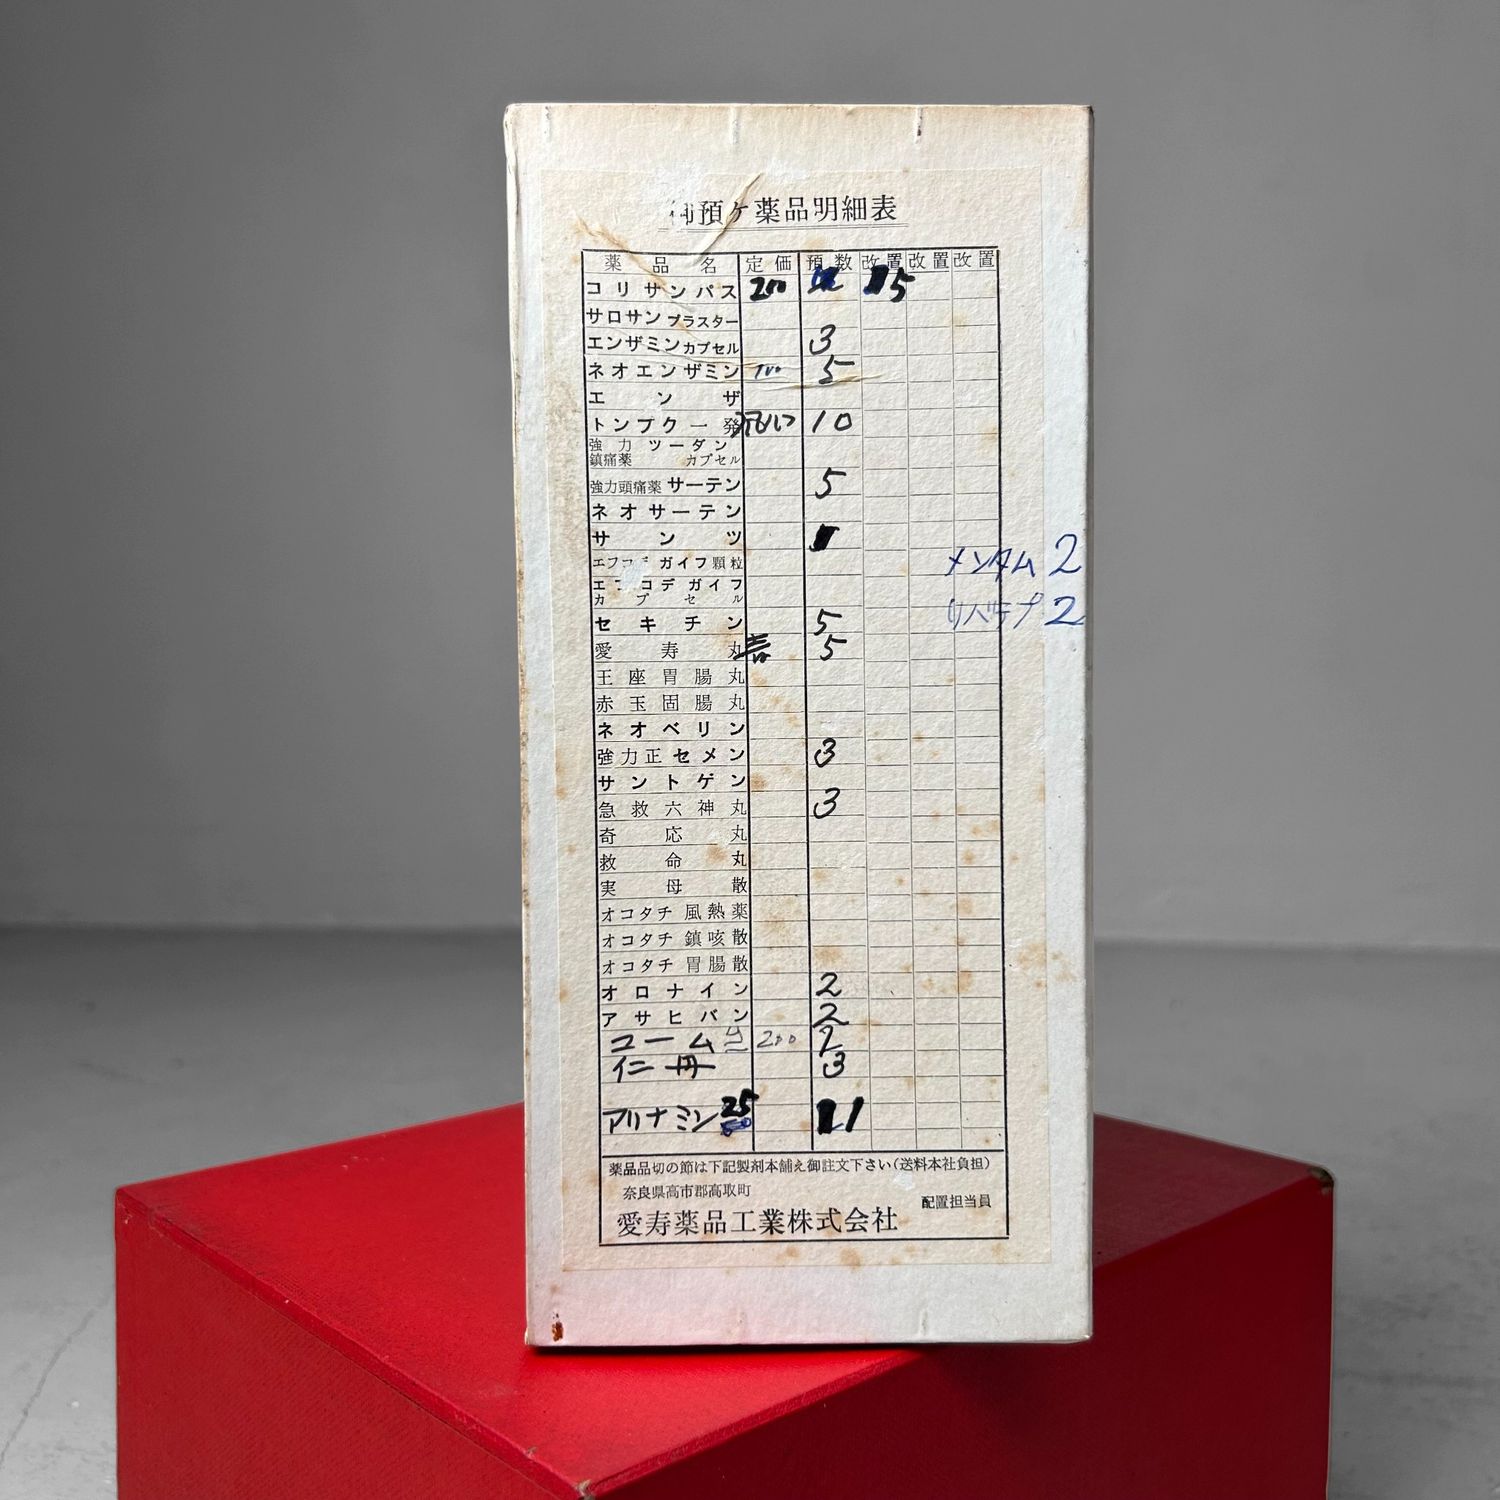 預ケ薬品明細表
薬品名 定価 預数 改置 改置 改置
コリサンパス 200 5
サロサンプラスター
エンザミンカプセル 3
ネオエンザミン 5
エンザ
トンプク一発 10
強力鎮痛薬 ツーダンカプセル
強力頭痛薬 サーテン 5
ネオサーテン
サンツ
エフコデガイフ顆粒
エフコデガイフカプセル
セキチン 5
愛寿丸 5
王座胃腸丸
赤玉固腸丸
ネオベリン
強力正セメン 3
サントゲン
急救六神丸 3
奇応丸
救命丸
実母散
オコタチ 風熱薬
オコタチ 鎮咳散
オコタチ 胃腸散
オロナイン 2
アサヒバン 2
コーム 200 2
仁丹 3
アリナミン 25 1
メンタム 2
リバテープ 2
薬品品切の節は下記製剤本舗え御註文下さい(送料本社負担)
奈良県高市郡高取町
愛寿薬品工業株式会社
配置担当員